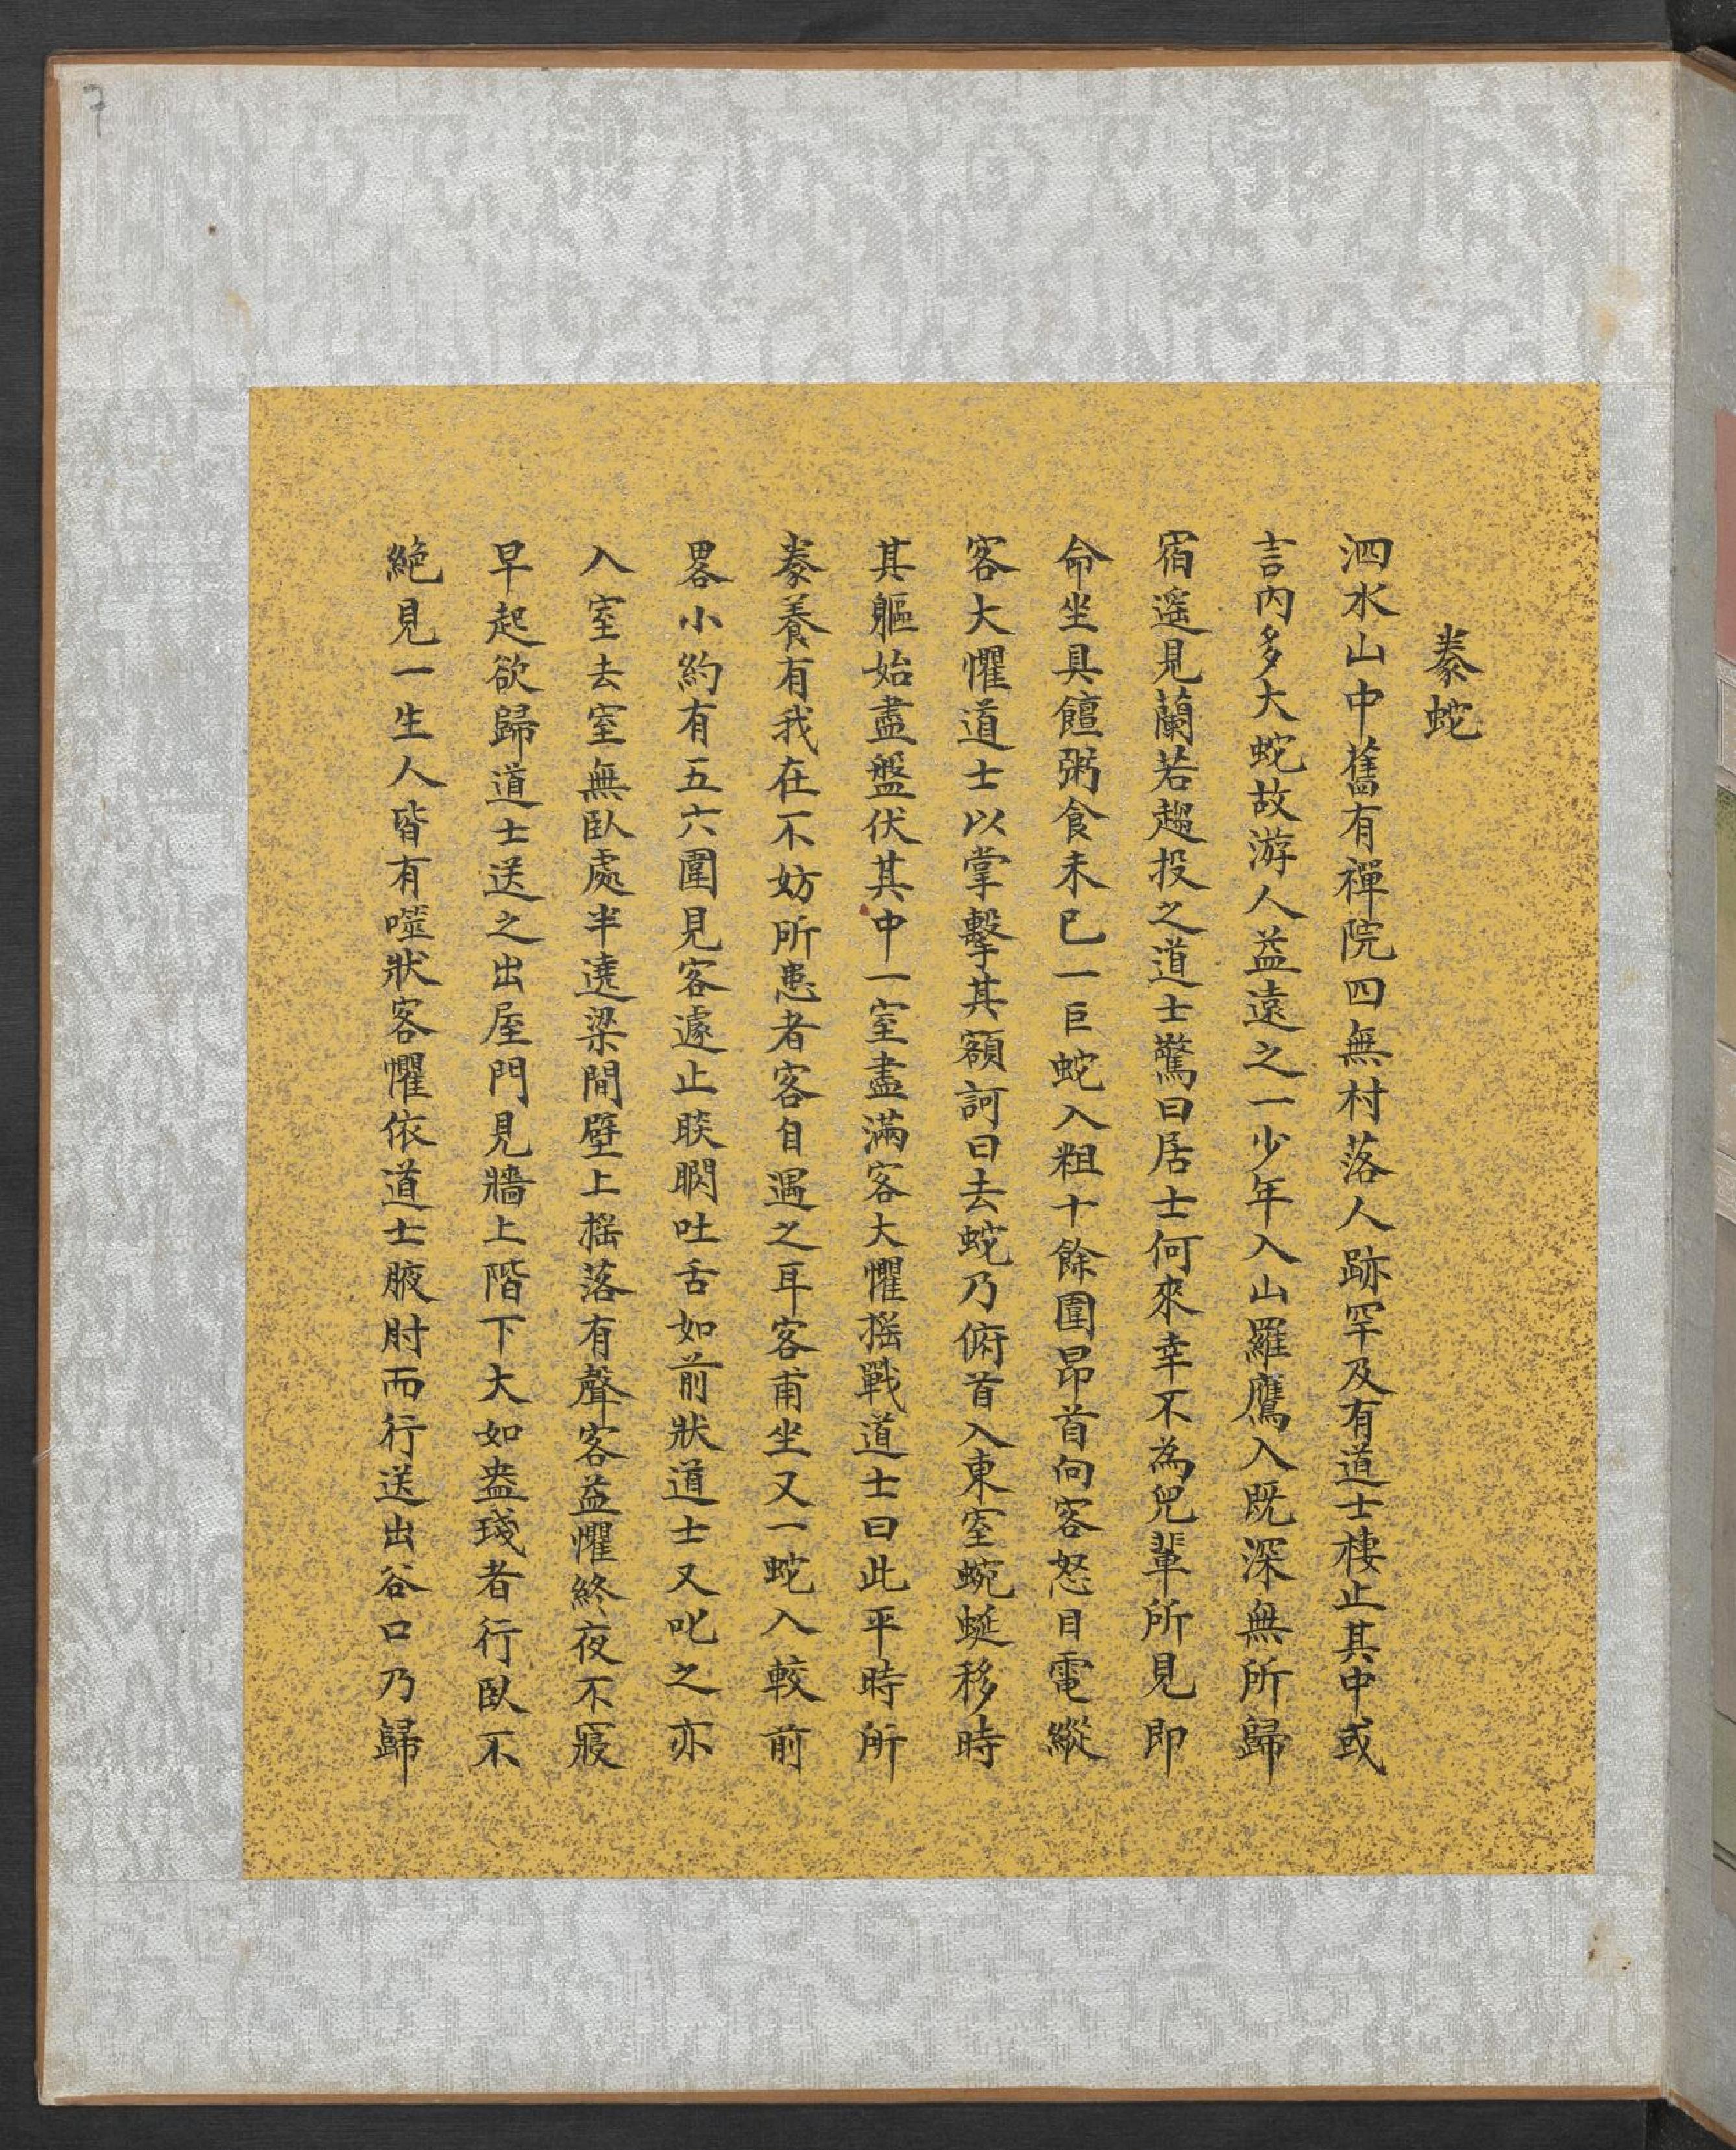 7
豢蛇
泗水山中舊有禪院四無村落人跡罕及有道士棲止其中或
言內多大蛇故游人益遠之一少年入山羅鷹入既深無所歸
宿遥見蘭若趨投之道士驚曰居士何來幸不為兒輩所見即
命坐具饘粥食未已一巨蛇入粗十餘圍昂首向客怒目電縱
客大懼道士以掌擊其額訶曰去蛇乃俯首入東室蜿蜒移時
其軀始盡盤伏其中一室盡滿客大懼摇戰道士曰此平時所
豢養有我在不妨所患者客自遇之耳客甫坐又一蛇入較前
畧小約有五六圍見客遽止睒瞯吐舌如前狀道士又叱之亦
入室去室無臥處半遶梁間壁上摇落有聲客益懼終夜不寢
早起欲歸道士送之出屋門見牆上階下大如盎琖者行臥不
絕見一生人皆有噬狀客懼依道士腋肘而行送出谷口乃歸